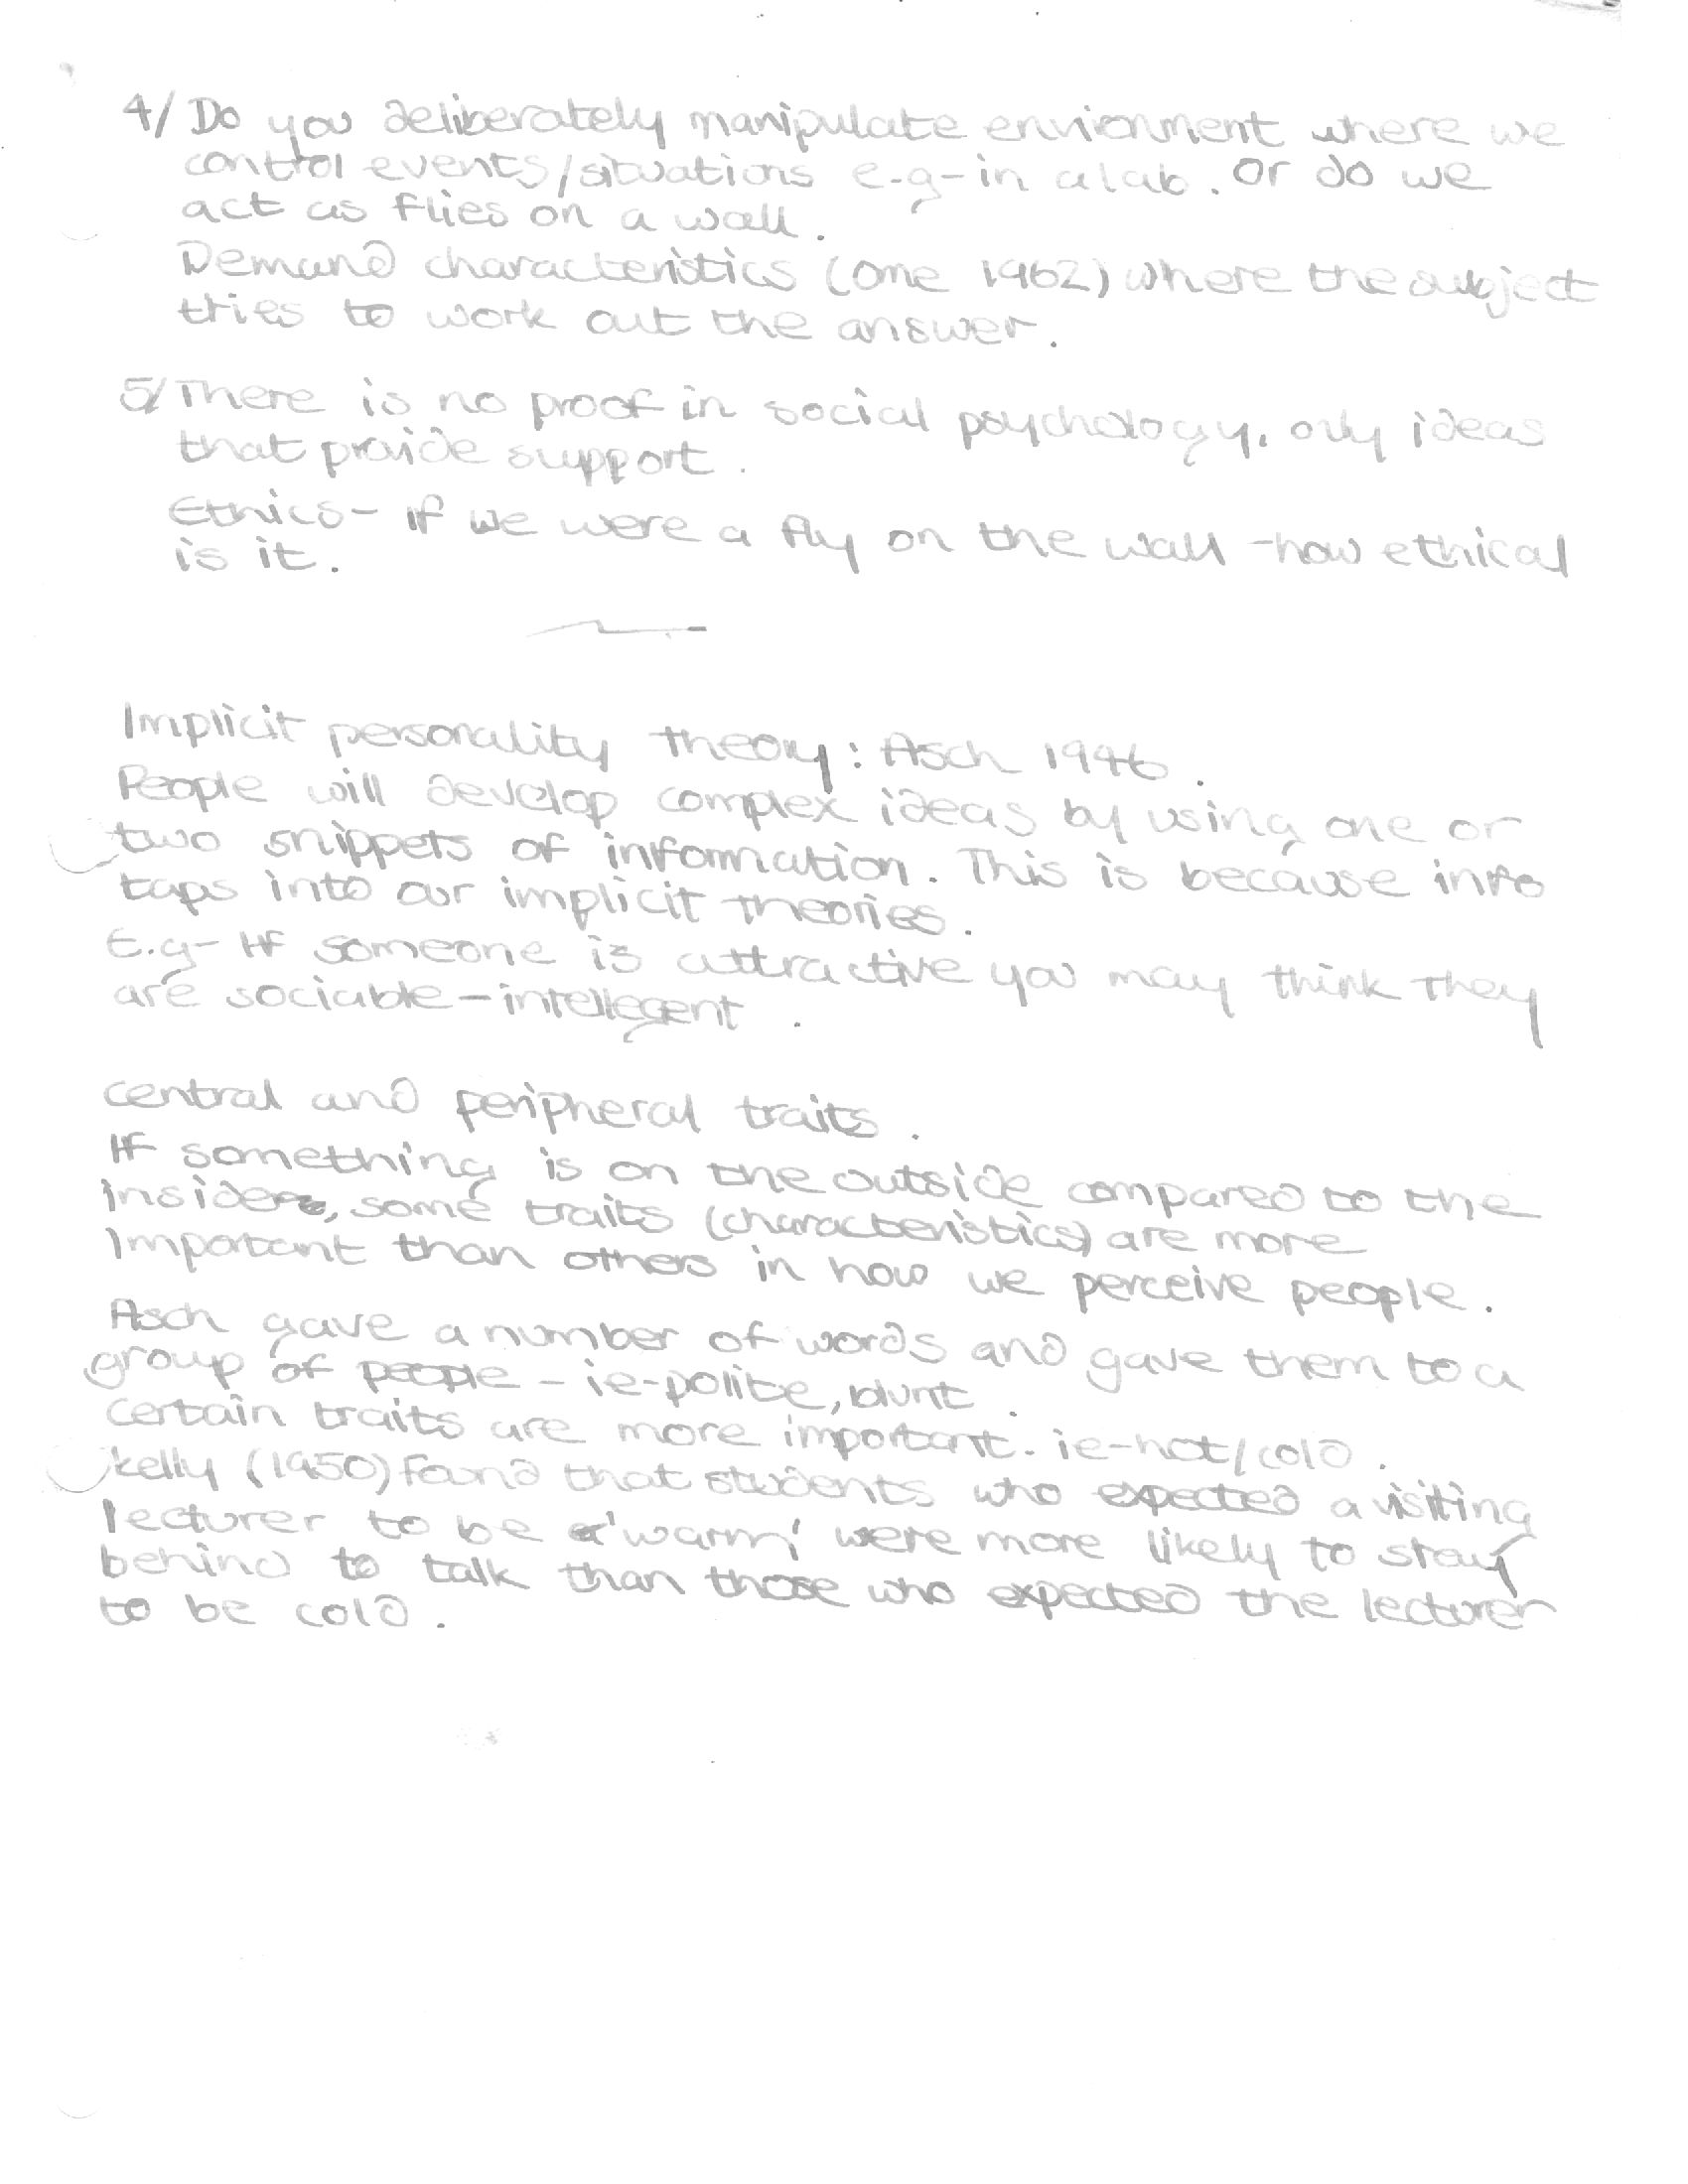 4/ Do you deliberately manipulate envionment where we
control events/situations e-g-in a lab. Or do we
act as flies on a wall.
Demand characteristics (Orne 1962) where the subject
tries to work out the answer.
5/ There is no proof in social psychology, only ideas
that provide support.
Ethics- If we were a fly on the wall -how ethical
is it.
Implicit personality theory: Asch 1946.
People will develop complex ideas by using one or
two snippets of information. This is because info
taps into our implicit theories.
E.g- If someone is attractive you may think they
are sociable-intellegent.
central and peripheral traits.
If something is on the outside compared to the
inside, some traits (characteristics) are more
important than others in how we perceive people.
Asch gave a number of words and gave them to a
group of people - ie-polite, blunt.
Certain traits are more important. ie-hot/cold.
Kelly (1950) found that students who expected a visiting
lecturer to be a 'warm' were more likely to stay
behind to talk than those who expected the lecturer
to be cold.